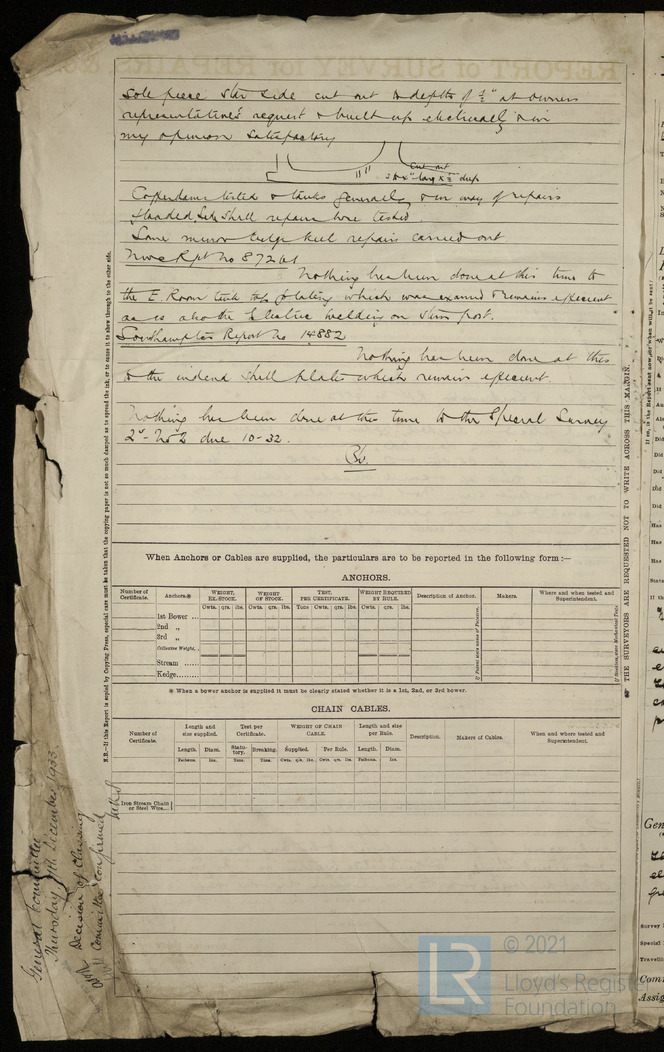 Sole piece Star side cut out to depths of ½" at owners
representative's request & built up electrically & in
my opinion satisfactory
Cut out
long x ½" deep
Cofferdams tested & tanks generally & in way of repairs
flooded, side shell repairs hose tested.
Some minor bilge keel repairs carried out
Nwc Rpt No 87261
Nothing has been done at this time to
the E. Room tank top plating which was examd & remains efficient
as is also the Electric Welding on stern post.
Southampton Report No 14882
Nothing has been done at this
to the indend shell plates which remain efficient.
Nothing has been done at this time to the Special Survey
2nd No 2 due 10-32.
When Anchors or Cables are supplied, the particulars are to be reported in the following form :—
ANCHORS.
Number of Certificate. Anchors.* WEIGHT, EX. STOCK. WEIGHT OF STOCK. TEST, PER CERTIFICATE. WEIGHT REQUIRED BY RULE. Description of Anchor. Makers. Where and when tested and Superintendent.
Cwts. qrs. lbs. Cwts. qrs. lbs. Tons Cwts. qrs. lbs. Cwts. qrs. lbs.
1st Bower ...
2nd „
3rd „
Collective Weight.
Stream ......
Kedge.........
* When a bower anchor is supplied it must be clearly stated whether it is a 1st, 2nd, or 3rd bower.
CHAIN CABLES.
Number of Certificate. Length and size supplied. Test per Certificate. WEIGHT OF CHAIN CABLE. Length and size per Rule. Description. Makers of Cables. When and where tested and Superintendent.
Length. Diam. Statutory. Breaking. Supplied. Per Rule. Length. Diam.
Fathoms. Ins. Tons. Tons. Cwts. qrs. lbs. Cwts. qrs. lbs. Fathoms. Ins.
Iron Stream Chain or Steel Wire....
N.B.—If this Report is copied by Copying Press, especial care must be taken that the copying paper is not so much damped as to spread the ink, or to cause it to show through to the other side.
THE SURVEYORS ARE REQUESTED NOT TO WRITE ACROSS THIS MARGIN.
General Committee
Thursday 7th December 1933
Decision of Classing
Committee confirmed
© 2021
Lloyd's Register
Foundation